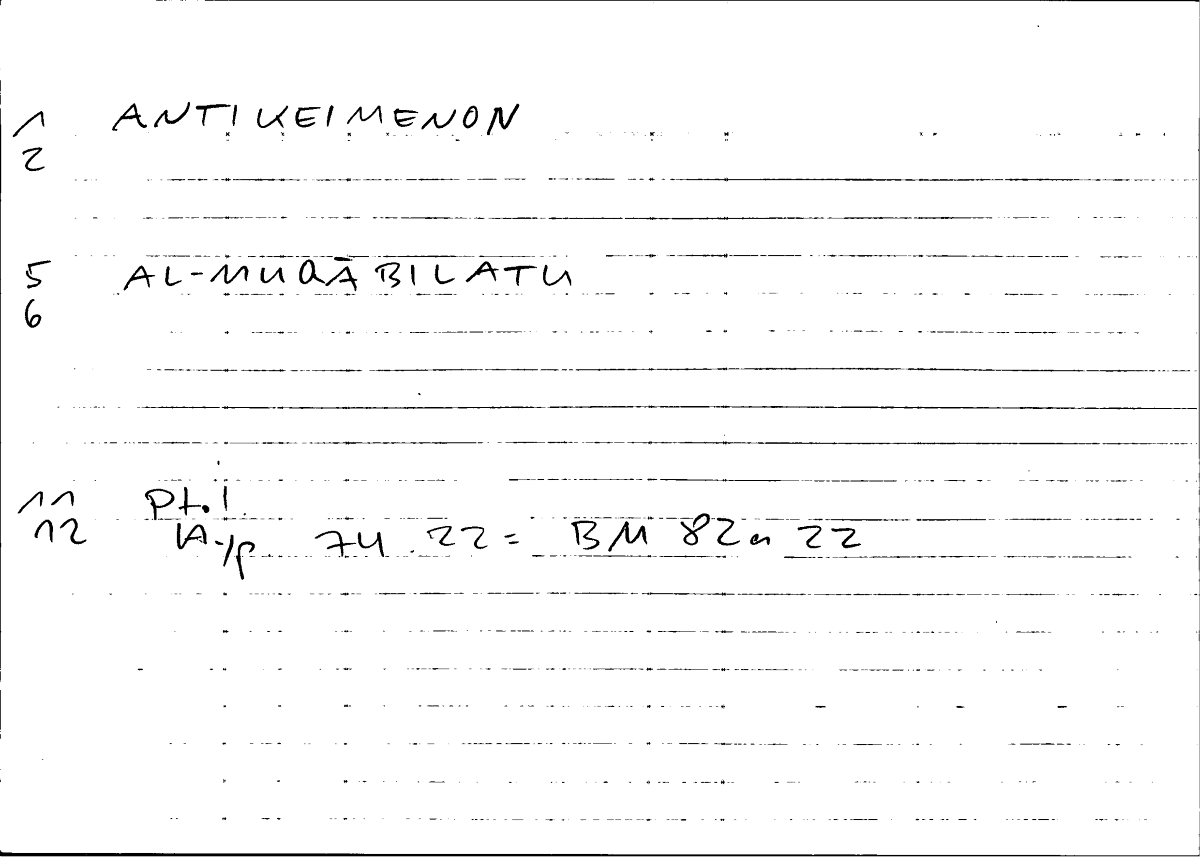 1 ANTIKEIMENON
2
5 AL-MUQĀBILATU
6
11 Pt.!
12 Hyp 74.22 = BM 82a 22